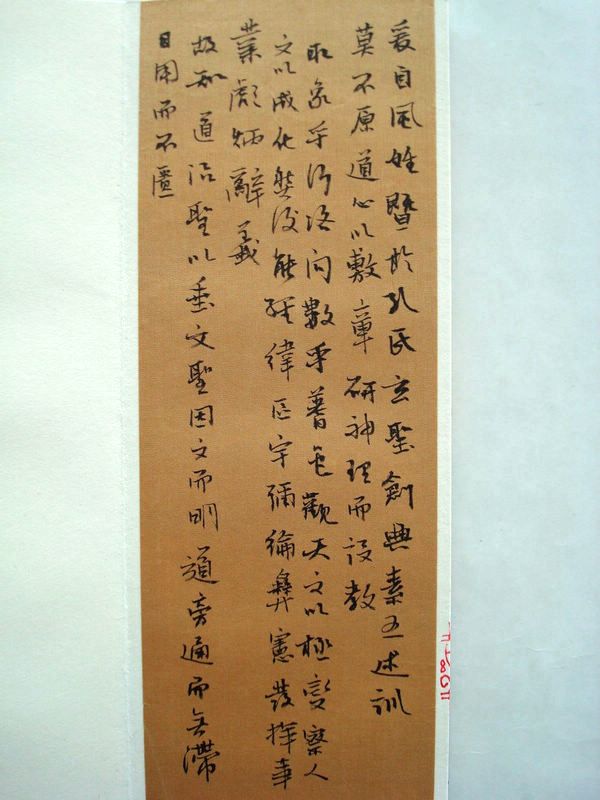 爰自風姓暨於孔氏玄聖創典素王述訓
莫不原道心以敷章研神理而設教
取象乎河洛問數乎蓍龜觀天文以極變察人
文以成化然後能經緯區宇彌綸彝憲發揮事
業彪炳辭義
故知道沿聖以垂文聖因文而明道旁通而無滯
日用而不匱